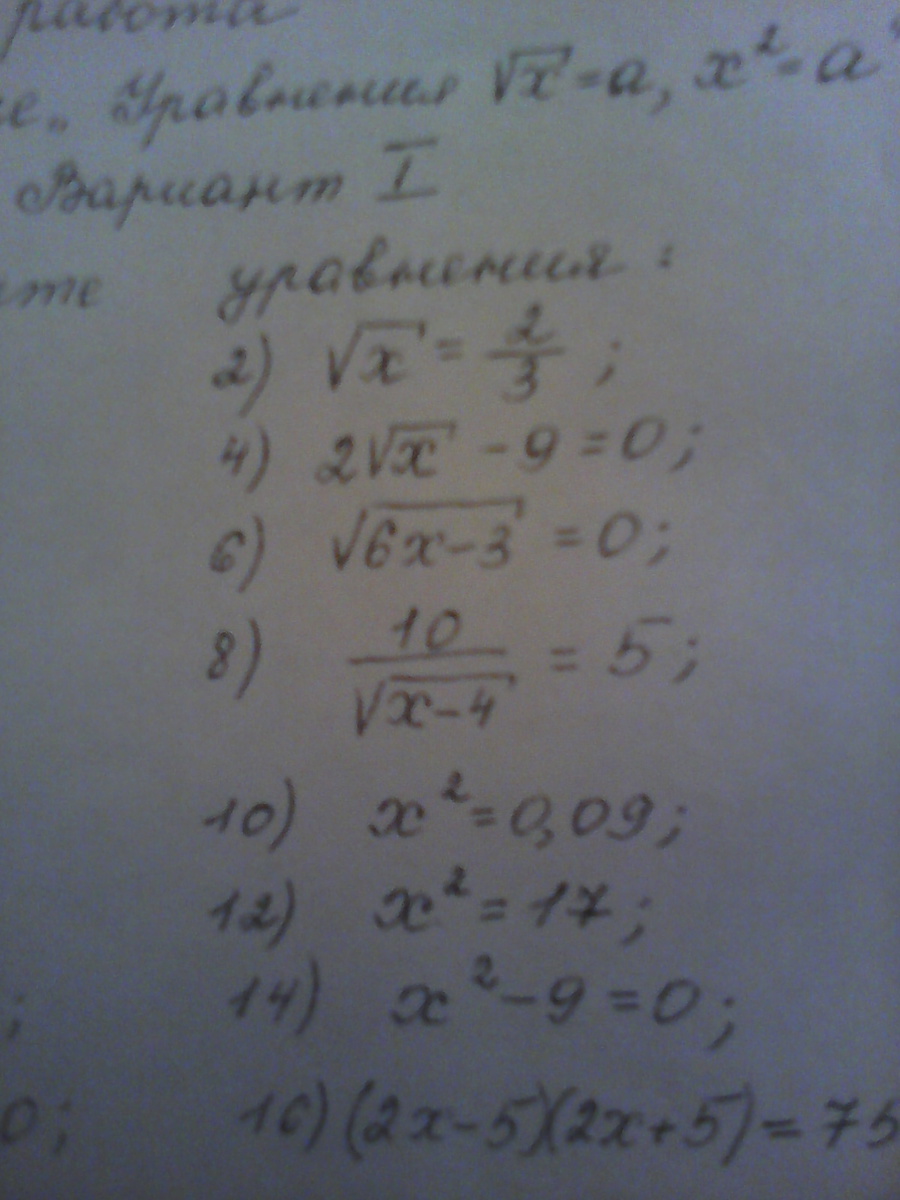 работа
Уравнения √x = a, x² = a
Вариант I
уравнения:
2) √x = 2/3 ;
4) 2√x - 9 = 0 ;
6) √(6x-3) = 0 ;
8) 10/√(x-4) = 5 ;
10) x² = 0,09 ;
12) x² = 17 ;
; 14) x² - 9 = 0 ;
0 ; 16) (2x-5)(2x+5) = 75